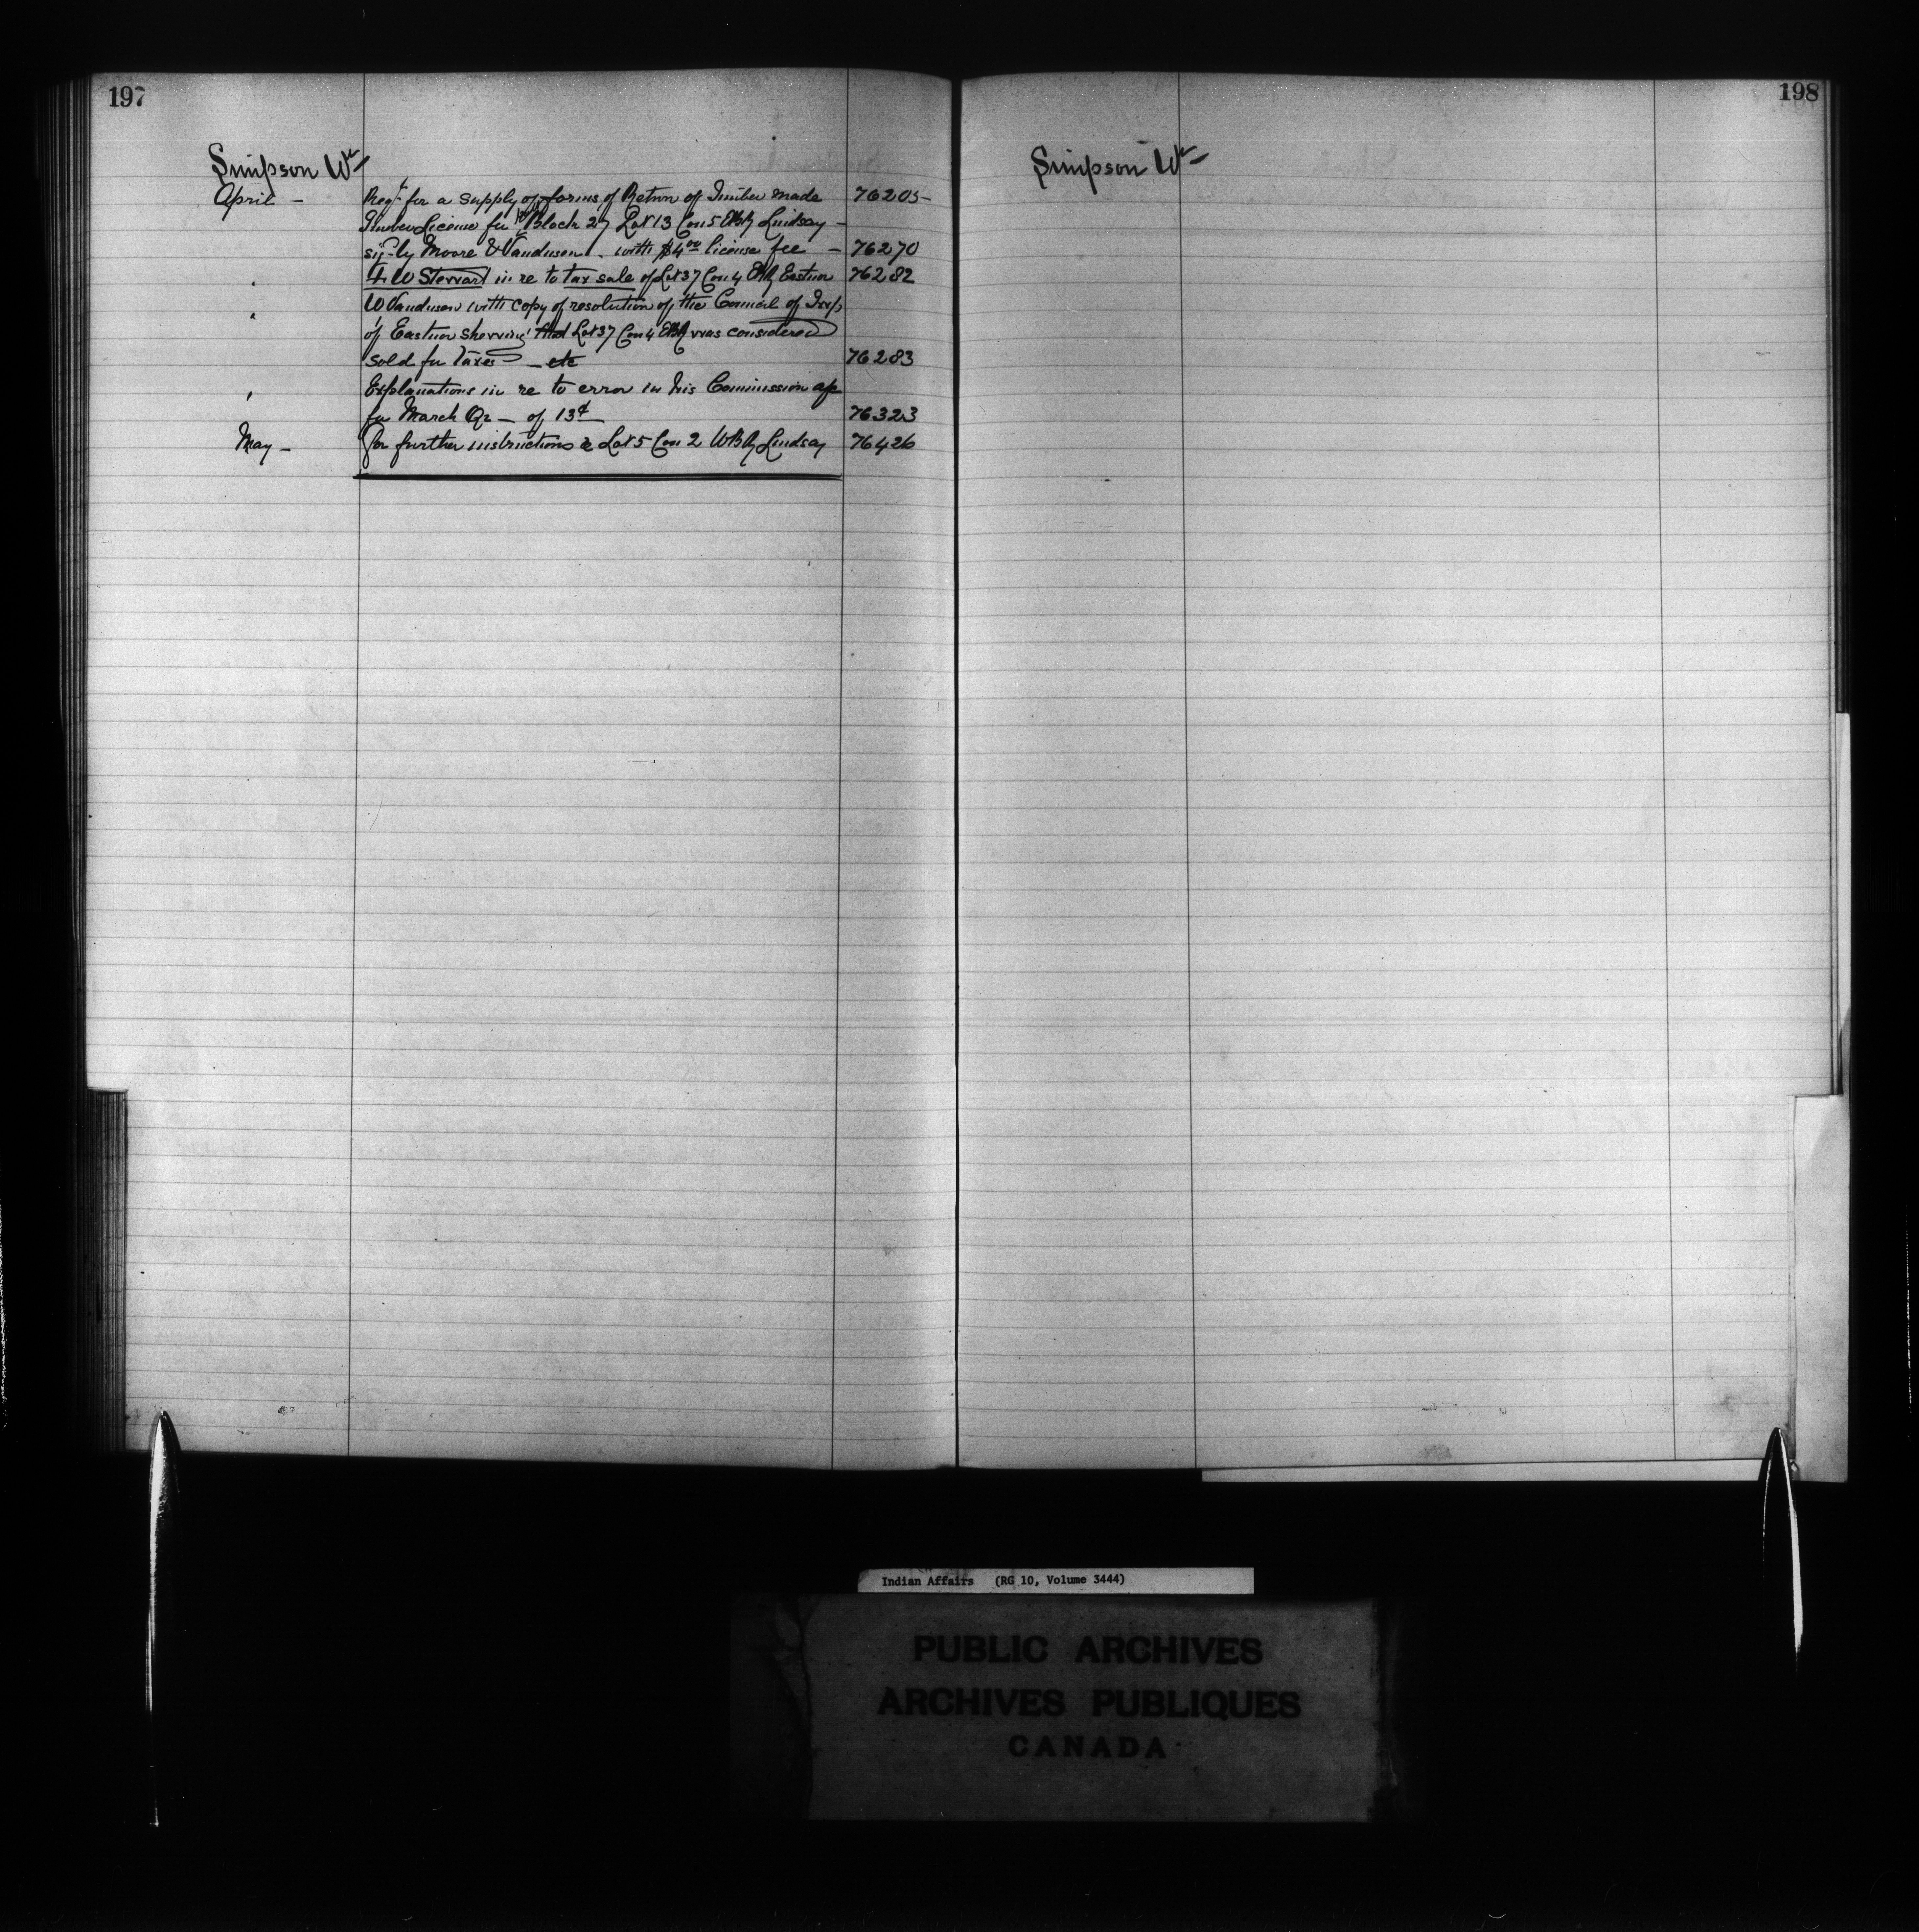 197
Simpson Wm
April – Reqt for a supply of forms of Return of Timber made 76205
Timber License for Block 27 Lot 13 Con 5 EBR Lindsay –
sigd by Moore & Vandusen. with $4.00 license fee – 76270
" W Stewart in re to tax sale of Lot 37 Con 4 EBR Eastnor 76282
" W Vandusen with copy of resolution of the Council of Twp
of Eastnor showing that Lot 37 Con 4 EBR was considered
sold for Taxes – etc 76283
" Explanations in re to error in his Commission a/c
for March Qr – of 13¢ 76323
May – for further instructions re Lot 5 Con 2 WBR Lindsay 76426
198
Simpson Wm
Indian Affairs (RG 10, Volume 3444)
PUBLIC ARCHIVES
ARCHIVES PUBLIQUES
CANADA